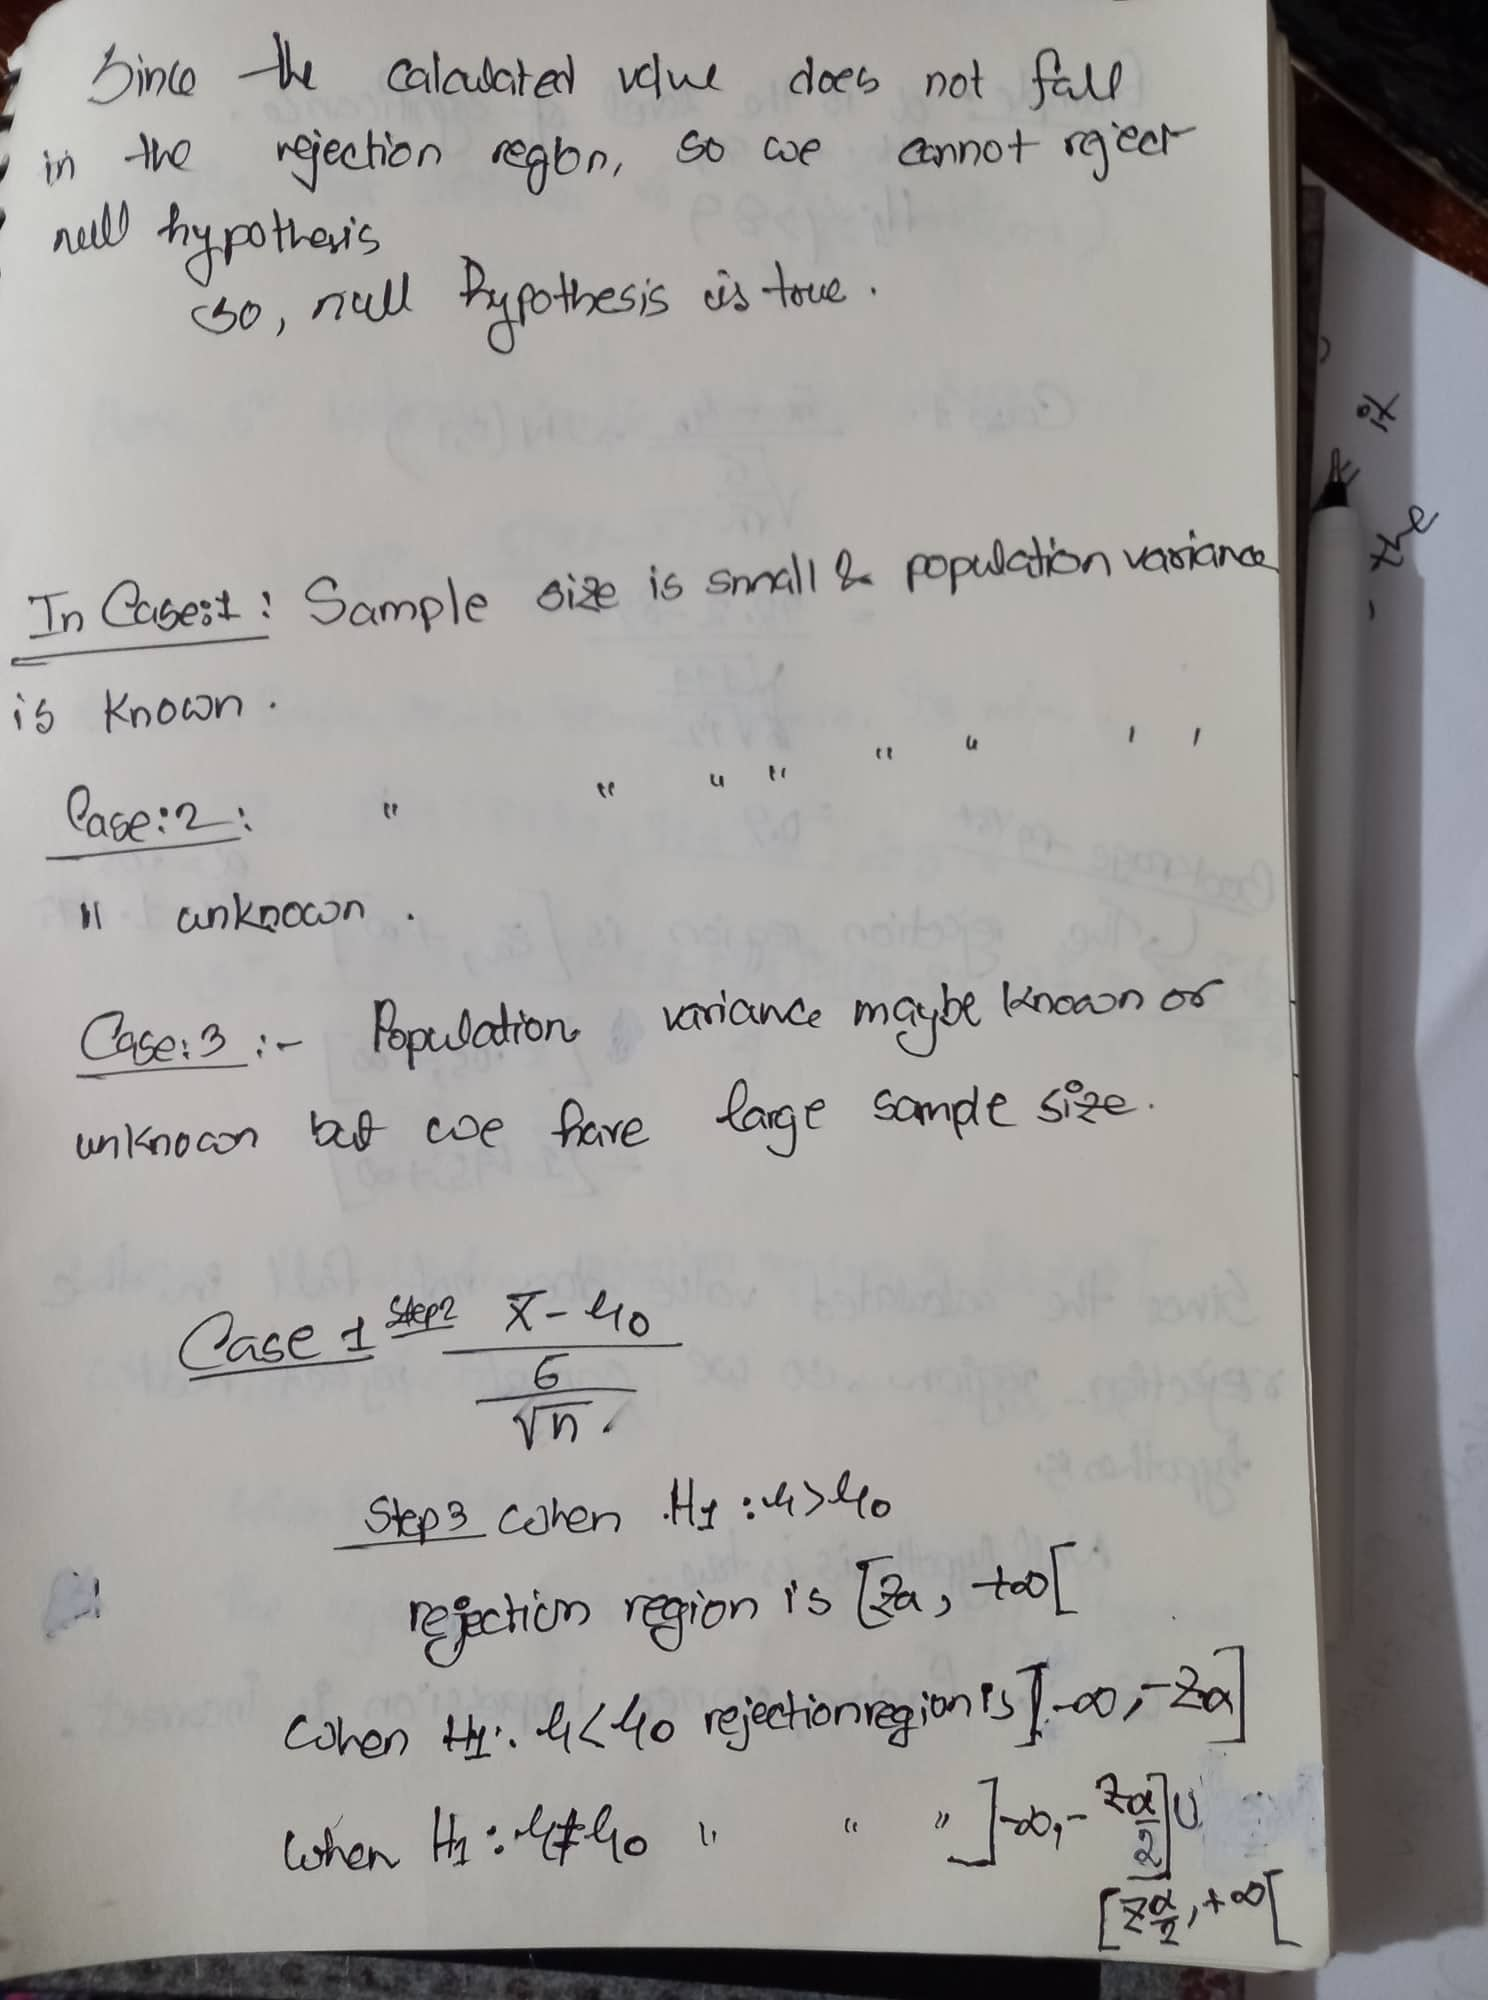 Since the calculated value does not fall
in the rejection region, so we cannot reject
null hypothesis
so, null hypothesis is true.
In Case:1: Sample size is small & population variance
is known.
Case:2: " " " " " " ' '
" unknown.
Case:3 :- Population variance maybe known or
unknown but we have large sample size.
Case 1 Step2 x̄ - μ0
σ
√n
Step 3 when H1 : μ > μ0
rejection region is [Zα, +∞[
when H1: μ < μ0 rejection region is ]-∞, -Zα]
when H1 : μ ≠ μ0 " " " ]-∞, -Zα/2] U
[Zα/2, +∞[